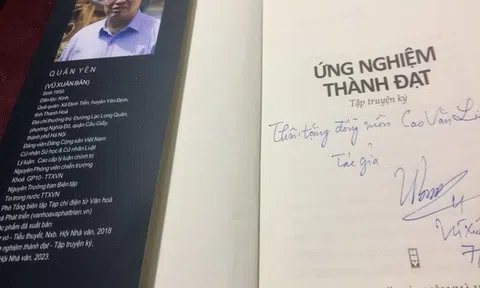 QUÂN YÊN
(VŨ XUÂN BÂN)
Sinh 1950
Dân tộc: Kinh
Quê quán: Xã Định Tiến, huyện Yên Định,
tỉnh Thanh Hoá
Địa chỉ thường trú: Đường Lạc Long Quân,
phường Nghĩa Đô, quận Cầu Giấy,
thành phố Hà Nội
Đảng viên Đảng Cộng sản Việt Nam
Cử nhân Sử học & Cử nhân Luật
Lý luận: Cao cấp lý luận chính trị
Nguyên Phóng viên chiến trường
Khoá GP10 - TTXVN
Nguyên Trưởng ban Biên tập
Tin trong nước TTXVN
Phó Tổng biên tập Tạp chí điện tử Văn hoá
và Phát triển (vanhoavaphattrien.vn)
phẩm đã xuất bản:
vơ - Tiểu thuyết, Nxb. Hội Nhà văn, 2018
nghiệm thành đạt - Tập truyện ký,
Hội Nhà văn, 2023.
ỨNG NGHIỆM
THÀNH ĐẠT
Tập truyện ký
Thân tặng đồng môn Cao Văn
Tác giả
Vũ Xuâ